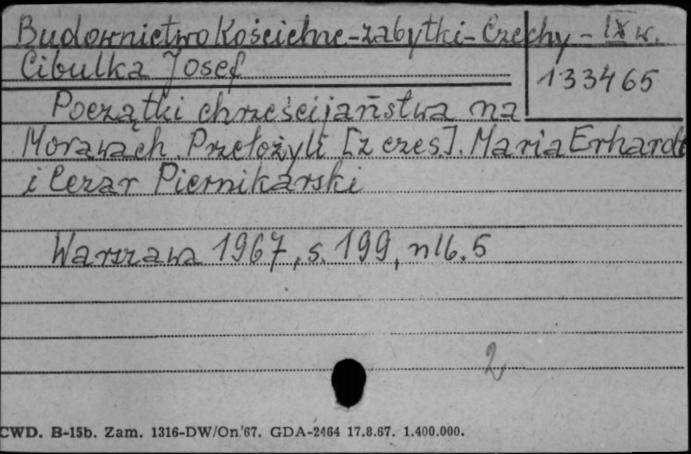 Budownictwo Kościelne - zabytki - Czechy - IX w.
Cibulka Josef
133465
Początki chrześcijaństwa na
Morawach. Przełożyli [z czes]. Maria Erhardt
i Cezar Piernikarski
Warszawa 1967, s. 199, nlb. 5
2
CWD. B-15b. Zam. 1316-DW/On.'67. GDA-2464 17.8.67. 1.400.000.